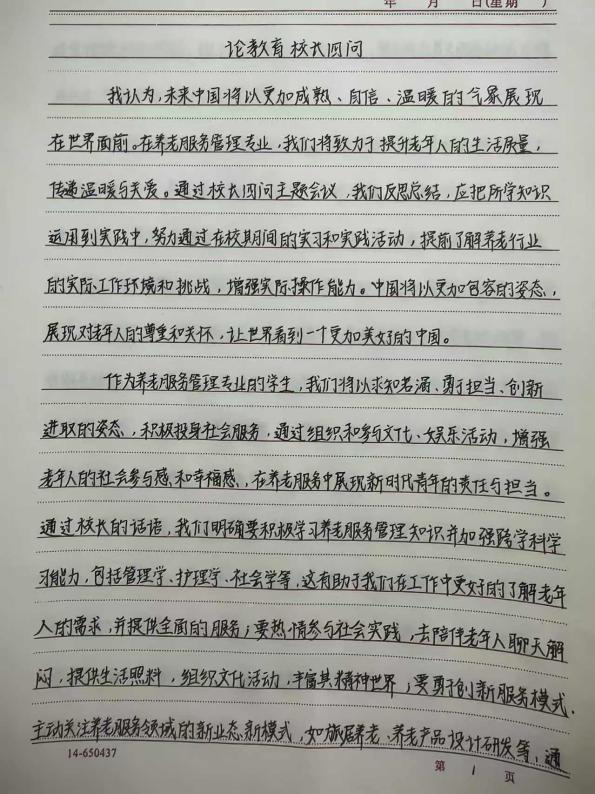 年 月 日(星期 )
论教育校长四问
我认为,未来中国将以更加成熟、自信、温暖的气象展现
在世界面前。在养老服务管理专业,我们将致力于提升老年人的生活质量,
传递温暖与关爱。通过校长四问主题会议,我们反思总结,应把所学知识
运用到实践中,努力通过在校期间的实习和实践活动,提前了解养老行业
的实际工作环境和挑战,增强实际操作能力。中国将以更加包容的姿态,
展现对老年人的尊重和关怀,让世界看到一个更加美好的中国。
作为养老服务管理专业的学生,我们将以求知若渴、勇于担当、创新
进取的姿态,积极投身社会服务,通过组织和参与文化、娱乐活动,增强
老年人的社会参与感和幸福感,在养老服务中展现新时代青年的责任与担当。
通过校长的话语,我们明确要积极学习养老服务管理知识并加强跨学科学
习能力,包括管理学、护理学、社会学等,这有助于我们在工作中更好的了解老年
人的需求,并提供全面的服务;要热情参与社会实践,去陪伴老年人聊天解
闷,提供生活照料,组织文化活动,丰富其精神世界;要勇于创新服务模式.
主动关注养老服务领域的新业态新模式,如旅居养老、养老产品设计研发等,通
14-650437
第 1 页